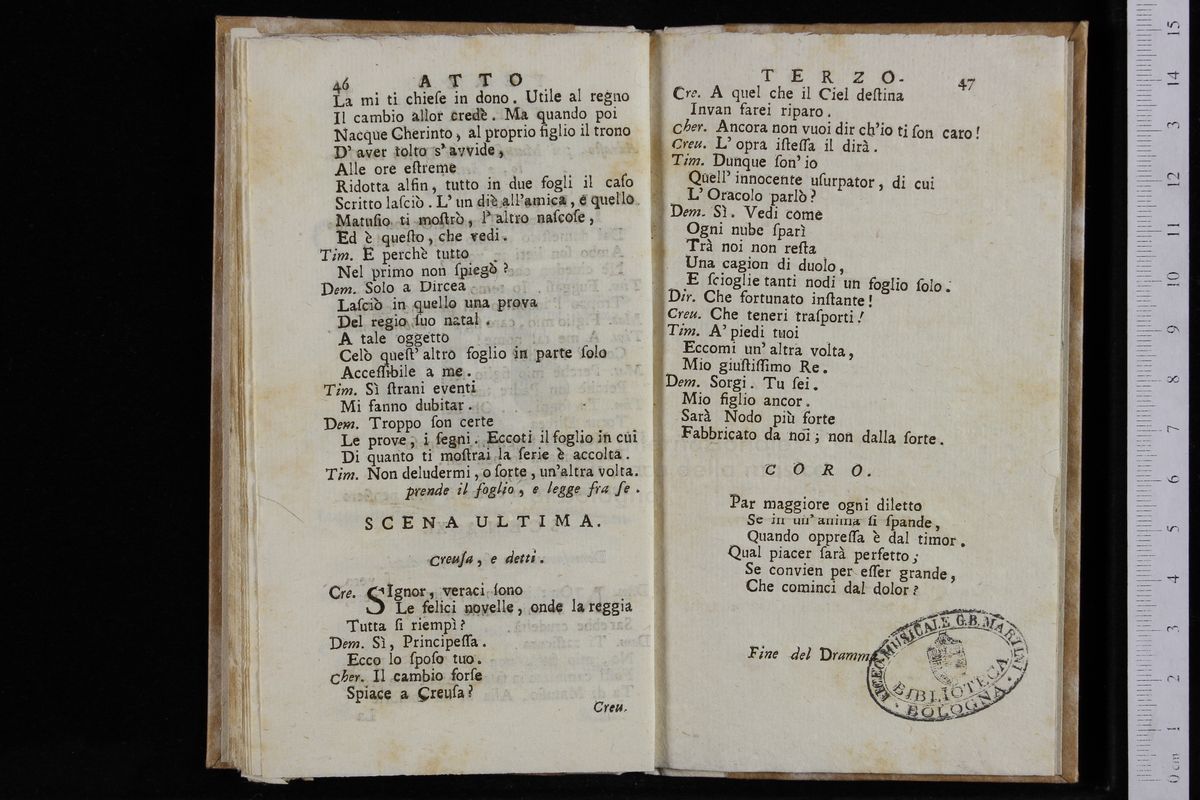 46 ATTO
La mi ti chieſe in dono. Utile al regno
Il cambio allor credè. Ma quando poi
Nacque Cherinto, al proprio figlio il trono
D' aver tolto s' avvide,
Alle ore eſtreme
Ridotta alfin, tutto in due fogli il caſo
Scritto laſciò. L' un diè all'amica, e quello
Matuſio ti moſtrò, l' altro naſcoſe,
Ed è queſto, che vedi.
Tim. E perchè tutto
Nel primo non ſpiegò?
Dem. Solo a Dircea
Laſciò in quello una prova
Del regio ſuo natal.
A tale oggetto
Celò queſt' altro foglio in parte ſolo
Acceſſibile a me.
Tim. Sì ſtrani eventi
Mi fanno dubitar.
Dem. Troppo ſon certe
Le prove, i ſegni. Eccoti il foglio in cui
Di quanto ti moſtrai la ſerie è accolta.
Tim. Non deludermi, o ſorte, un'altra volta.
prende il foglio, e legge fra ſe.
SCENA ULTIMA.
Creuſa, e detti.
Cre. SIgnor, veraci ſono
Le felici novelle, onde la reggia
Tutta ſi riempì?
Dem. Sì, Principeſſa.
Ecco lo ſpoſo tuo.
Cher. Il cambio forſe
Spiace a Creuſa?
Creu.
TERZO. 47
Cre. A quel che il Ciel deſtina
Invan farei riparo.
Cher. Ancora non vuoi dir ch'io ti ſon caro!
Creu. L' opra iſteſſa il dirà.
Tim. Dunque ſon' io
Quell' innocente uſurpator, di cui
L' Oracolo parlò?
Dem. Sì. Vedi come
Ogni nube ſparì
Trà noi non reſta
Una cagion di duolo,
E ſcioglie tanti nodi un foglio ſolo.
Dir. Che fortunato inſtante!
Creu. Che teneri traſporti!
Tim. A' piedi tuoi
Eccomi un' altra volta,
Mio giuſtiſſimo Re.
Dem. Sorgi. Tu ſei.
Mio figlio ancor.
Sarà Nodo più forte
Fabbricato da noi; non dalla ſorte.
CORO.
Par maggiore ogni diletto
Se in un' anima ſi ſpande,
Quando oppreſſa è dal timor.
Qual piacer ſarà perfetto;
Se convien per eſſer grande,
Che cominci dal dolor?
Fine del Dramm
MUSICALE G.B. MARTINI
BIBLIOTECA
BOLOGNA
0 cm 1 2 3 4 5 6 7 8 9 10 11 12 3 14 15